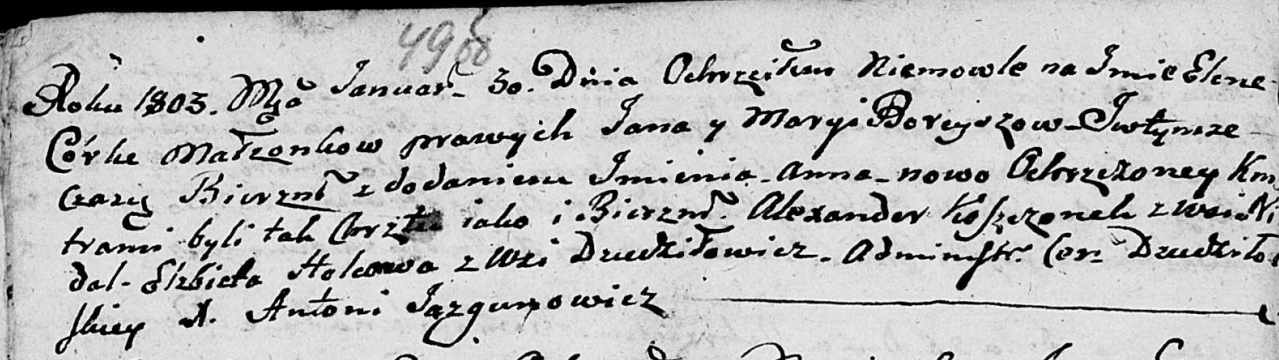 498
Roku 1803. Mca Januar. 30. Dnia Ochrzciłem Niemowle na Imie Elene
Córke Małzonkow prawych Jana y Maryi Boryszow - Iwtymze
czasy Bierzm z dodaniem Imienia - Anna - nowo Ochrzczoney Km
trami byli tak Chrztu iako i Bierzm. Alexander Koszczonek z wsi
dal - Elzbieta z wsi Dziedziłowicz. Administr. Cer. Dziedziło
skiey X. Antoni Jazgunowicz